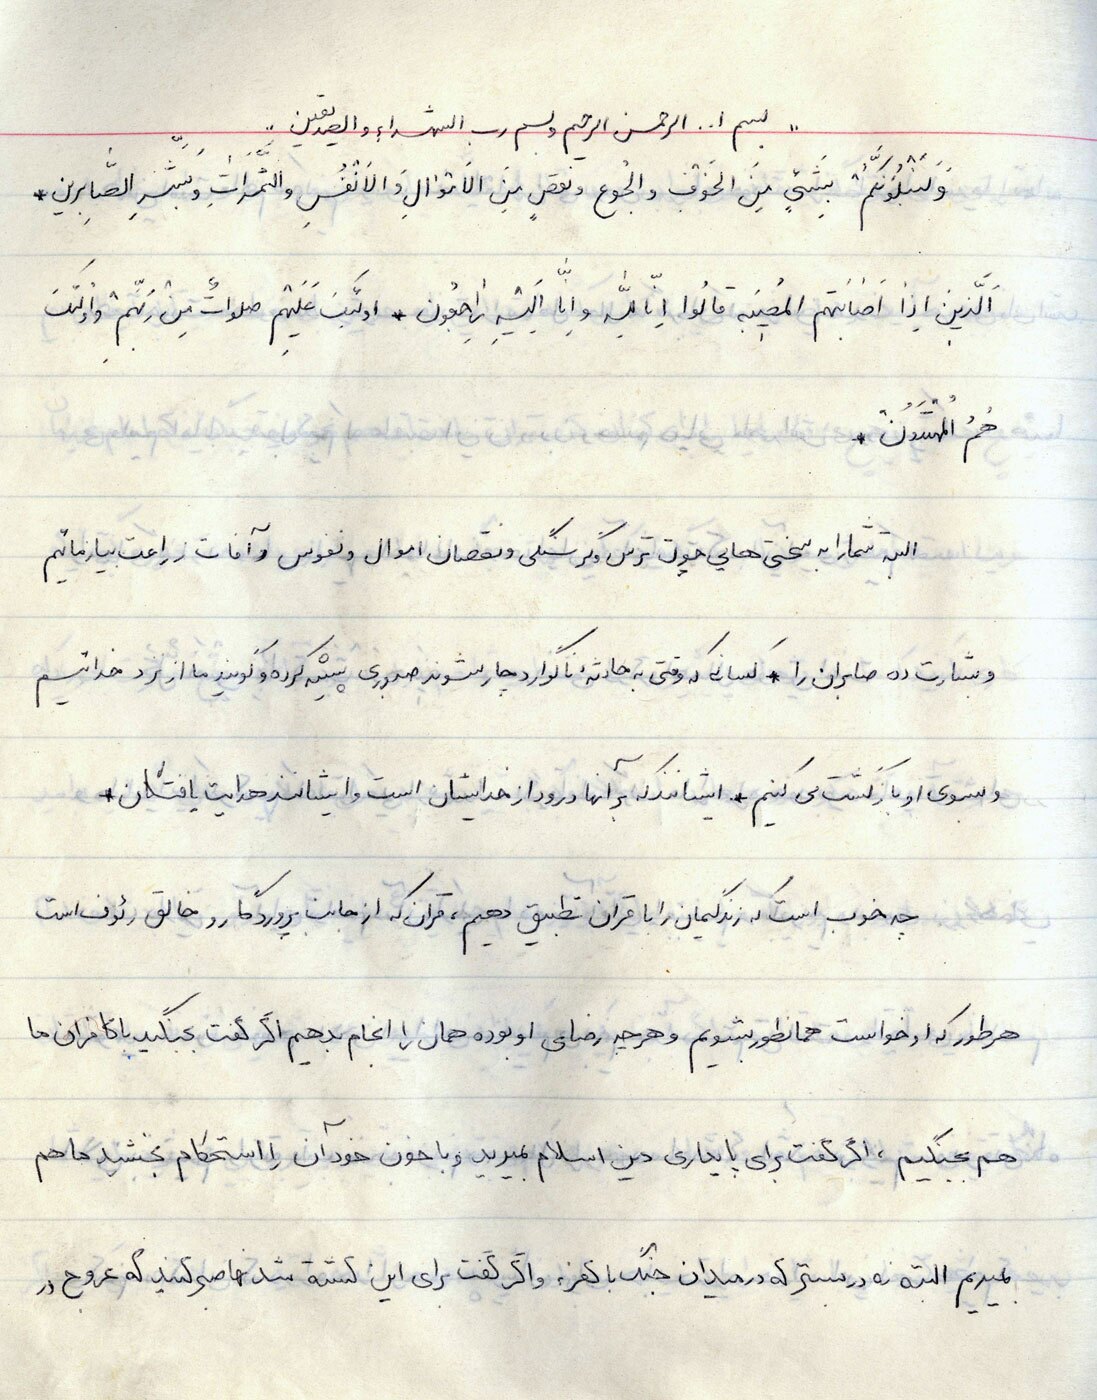 " بسم ا.. الرحمن الرحیم و بسم رب الشهداء و الصدیقین "
وَ لَنَبْلُوَنَّکُمْ بِشَیْءٍ مِنَ الخَوْفِ وَ الجُوعِ وَ نَقْصٍ مِنَ الاَمْوٰالِ وَ الاَنْفُسِ وَ الثَّمَرٰاتِ وَ بَشِّرِ الصّٰابِرینَ *
اَلَّذینَ اِذٰا اَصٰابَتهُم المُصیبَه قالُوا اِنّا لِلّٰهِ وَ اِنّٰا اِلَیْهِ رٰاجِعُون * اولئکَ عَلَیْهِم صلواتٌ مِنْ رَبِّهِمْ وَ اُولئکَ
هُمُ المُهْتَدُونَ *
البته شما را به سختی هایی چون ترس و گرسنگی و نقصان اموال و نفوس و آفات زراعت بیازمائیم
و بشارت ده صابران را * کسانی که وقتی به حادثهٔ ناگوار دچار شوند صبوری پیشه کرده و گویند ما از نزد خدائیم
و بسوی او بازگشت می کنیم * ایشانند که بر آنها درود از خدایشان است و ایشانند هدایت یافتگان *
چه خوب است که زندگیمان را با قرآن تطبیق دهیم ، قرآن که از جانب پروردگار و خالق رئوف است
هر طور که او خواست همانطور بشویم و هر چه رضای او بوده همان را انجام بدهیم اگر گفت بجنگید با کافران ما
هم بجنگیم ، اگر گفت برای پایداری دین اسلام بمیرید و با خون خود آن را استحکام بخشید ما هم
بمیریم البته نه در بستر که در میدان جنگ با کفر، و اگر گفت برای این کشته شدنها صبر کنید که عروج در